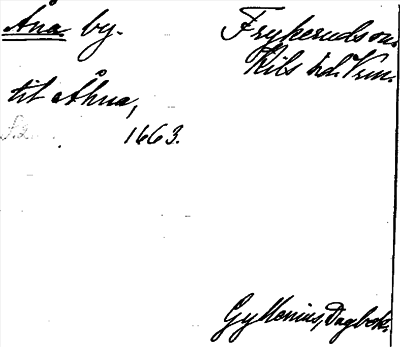 Åna by. Frykeruds sn.
Kils hd. Vrm.
till Åhna,
1663.
Gyllenius, Dagbok.